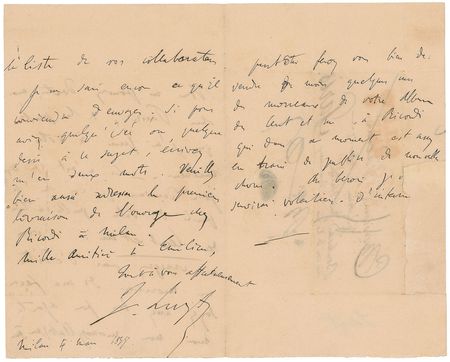 la liste de vos collaborateurs
Je ne sais encore ce qu'il
conviendra d'envoyer. Si vous
avez quelqu'idée ou quelque
désir à ce sujet, écrivez
m'en deux mots. Veuillez
bien aussi adresser la première
livraison de l'ouvrage chez
Ricordi à Milan.
Mille amitiés à Emilien,
Tout à vous affectueusement
F. Liszt
Milan 4 mars
peut être ferez vous bien de
vendre quelques uns
des morceaux de votre Album
de chant à Ricordi
qui dans ce moment est assez
en train de publier de nouvelles
choses. Au besoin j'y
servirai volontiers d'interm